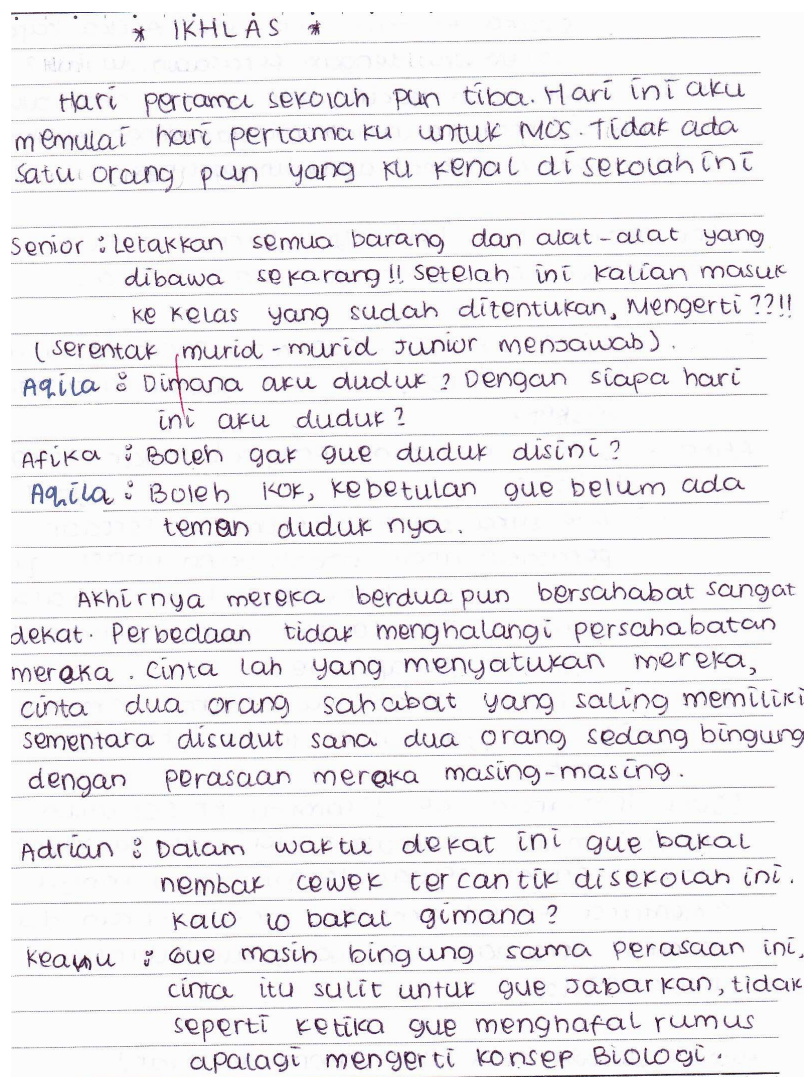 * IKHLAS *
Hari pertama sekolah pun tiba. Hari ini aku
memulai hari pertama ku untuk MOS. Tidak ada
satu orang pun yang ku kenal di sekolah ini
Senior : Letakkan semua barang dan alat-alat yang
dibawa sekarang!! Setelah ini kalian masuk
ke kelas yang sudah ditentukan, Mengerti??!!
(serentak murid-murid junior menjawab).
Aqila : Dimana aku duduk? Dengan siapa hari
ini aku duduk?
Afika : Boleh gak gue duduk disini?
Aqila : Boleh kok, kebetulan gue belum ada
teman duduk nya.
Akhirnya mereka berdua pun bersahabat sangat
dekat. Perbedaan tidak menghalangi persahabatan
mereka. Cinta lah yang menyatukan mereka,
cinta dua orang sahabat yang saling memiliki
sementara disudut sana dua orang sedang bingung
dengan perasaan mereka masing-masing.
Adrian : Dalam waktu dekat ini gue bakal
nembak cewek tercantik disekolah ini.
Kalo lo bakal gimana?
Keanu : Gue masih bingung sama perasaan ini,
cinta itu sulit untuk gue jabarkan, tidak
seperti ketika gue menghafal rumus
apalagi mengerti konsep Biologi.